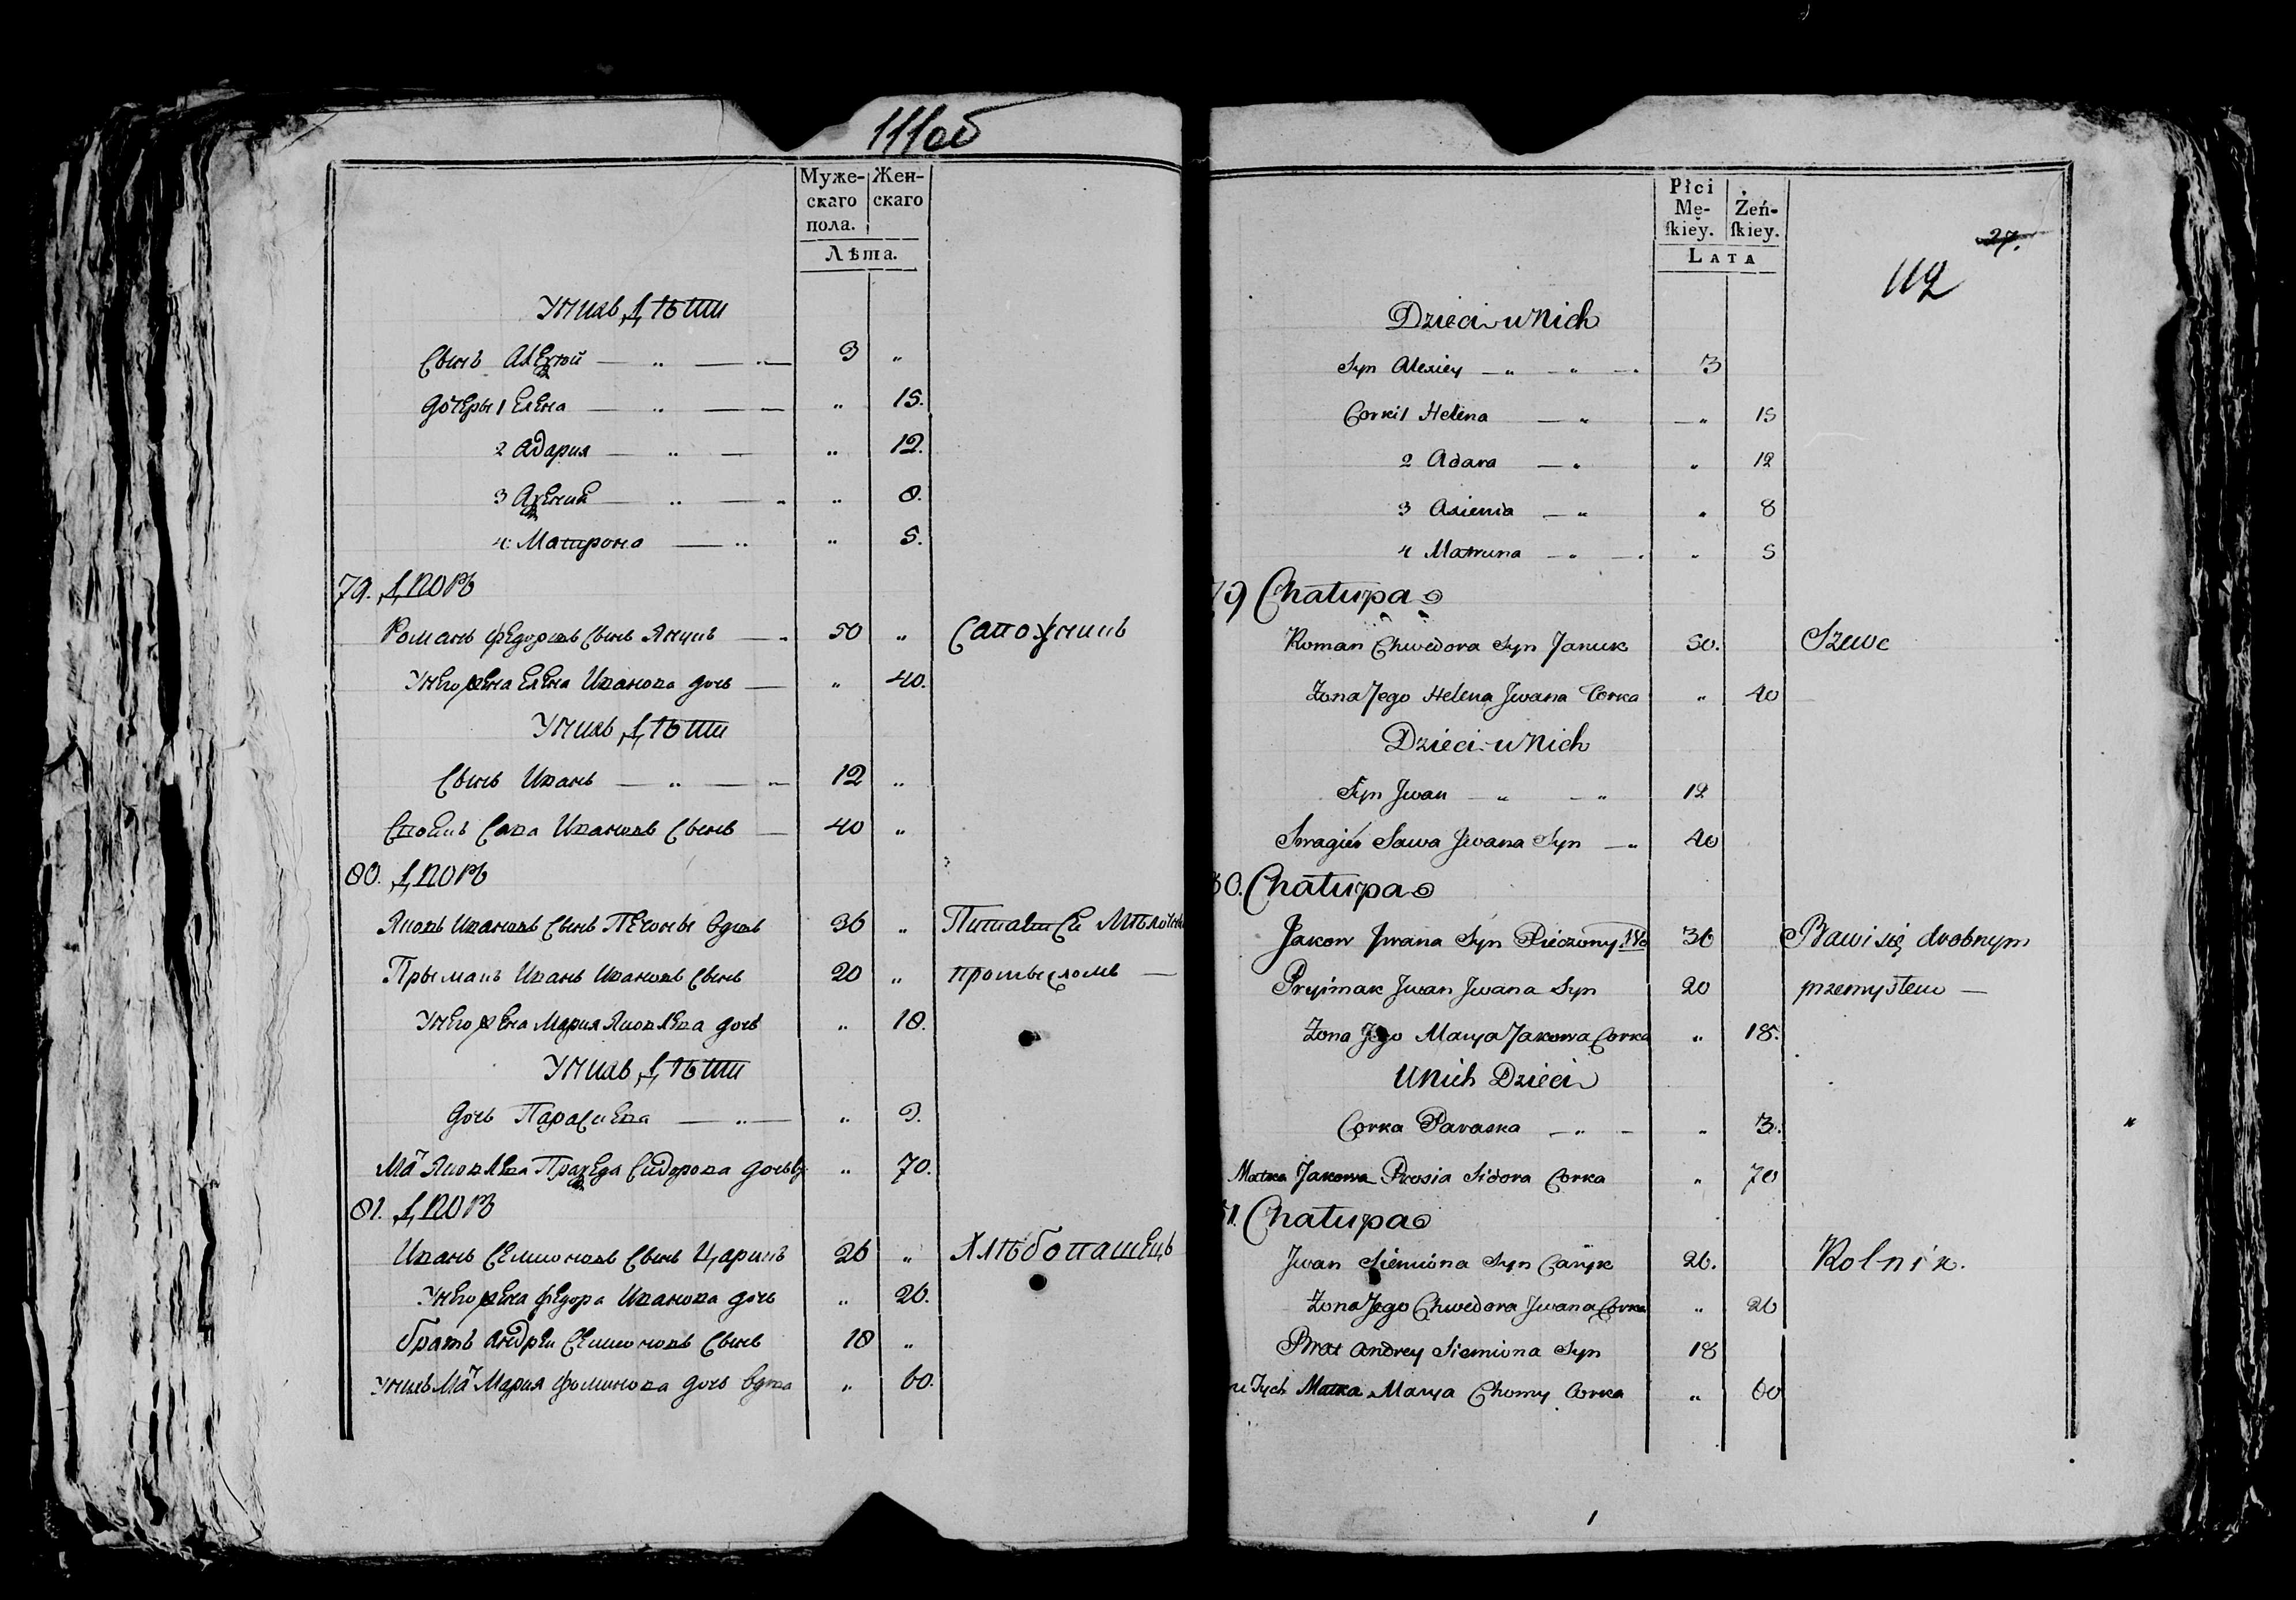 111об
Муже-
скаго
пола.
Жен-
скаго
Лѣта.
У нихъ дѣти
Сынъ Алексѣй — „ — „ 3 „
дочеры 1 Елена — „ — „ 15.
2 Адария — „ — „ 12.
3 Аксения — „ — „ „ 8.
4. Матрона — „ „ 5.
79. Дворъ
Романъ Федоровъ сынъ Янукъ — 50 „ Сапожникъ
У него жена Елена Иванова дочь — „ 40.
У нихъ дѣти
Сынъ Иванъ — „ — 12 „
Своякъ Сава Ивановъ сынъ — 40 „
80. Дворъ
Яковъ Ивановъ сынъ Печоны вдовъ 36 „ Питается мѣлочны
Прымакъ Иванъ Ивановъ сынъ 20 „ промысломъ —
У него жена Мария Яковлева дочь „ 18.
У нихъ дѣти
дочь Параскева — „ — „ 3.
Мат Яковлева Пракседа Сидорова дочь в „ 70.
81. Дворъ
Иванъ Семионовъ сынъ Царикъ 26 „ Хлѣбопашецъ
У него жена Федора Иванова дочь „ 26.
братъ Андрей Семионовъ сынъ 18 „
У нихъ мат Мария Фоминова дочь вдова „ 60.
Płci
Mę-
ſkiey.
Żeń-
ſkiey.
Lata
27.
112
Dzieci u Nich
Syn Alexiey — „ — „ — 3
Corki 1 Helena — „ — „ 15
2 Adara — „ „ 12
3 Axienia — „ „ 8
4 Matruna — „ — „ 5
79 Chałupa
Roman Chwedora Syn Januk 50. Szewc
Zona Jego Helena Jwana Corka „ 40
Dzieci u Nich
Syn Jwan — „ — „ 12
Swagier Sawa Jwana Syn — „ 40
80. Chałupa
Jakow Jwana Syn Pieczony 36 Bawi się drobnym
Pryimak Jwan Jwana Syn 20 przemysłem —
Zona Jego Marya Jakowa Corka „ 18.
U Nich Dzieci
Corka Paraska — „ — „ 3.
Matka Jakowa Prosia Sidora Corka „ 70
81. Chałupa
Jwan Siemiona Syn Caryk 26. Rolnik.
Zona Jego Chwedora Jwana Corka „ 26
Brat Andrey Siemiona Syn 18
u Jych Matka Marya Chomy Corka „ 60